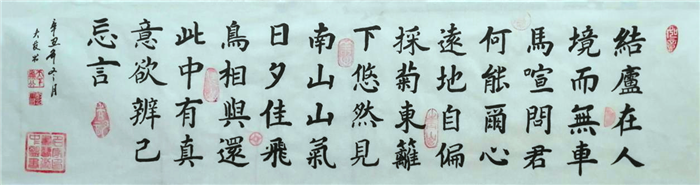 結廬在人
境而無車
馬喧問君
何能爾心
遠地自偏
採菊東籬
下悠然見
南山山氣
日夕佳飛
鳥相與還
此中有真
意欲辨己
忘言
辛丑年冬月